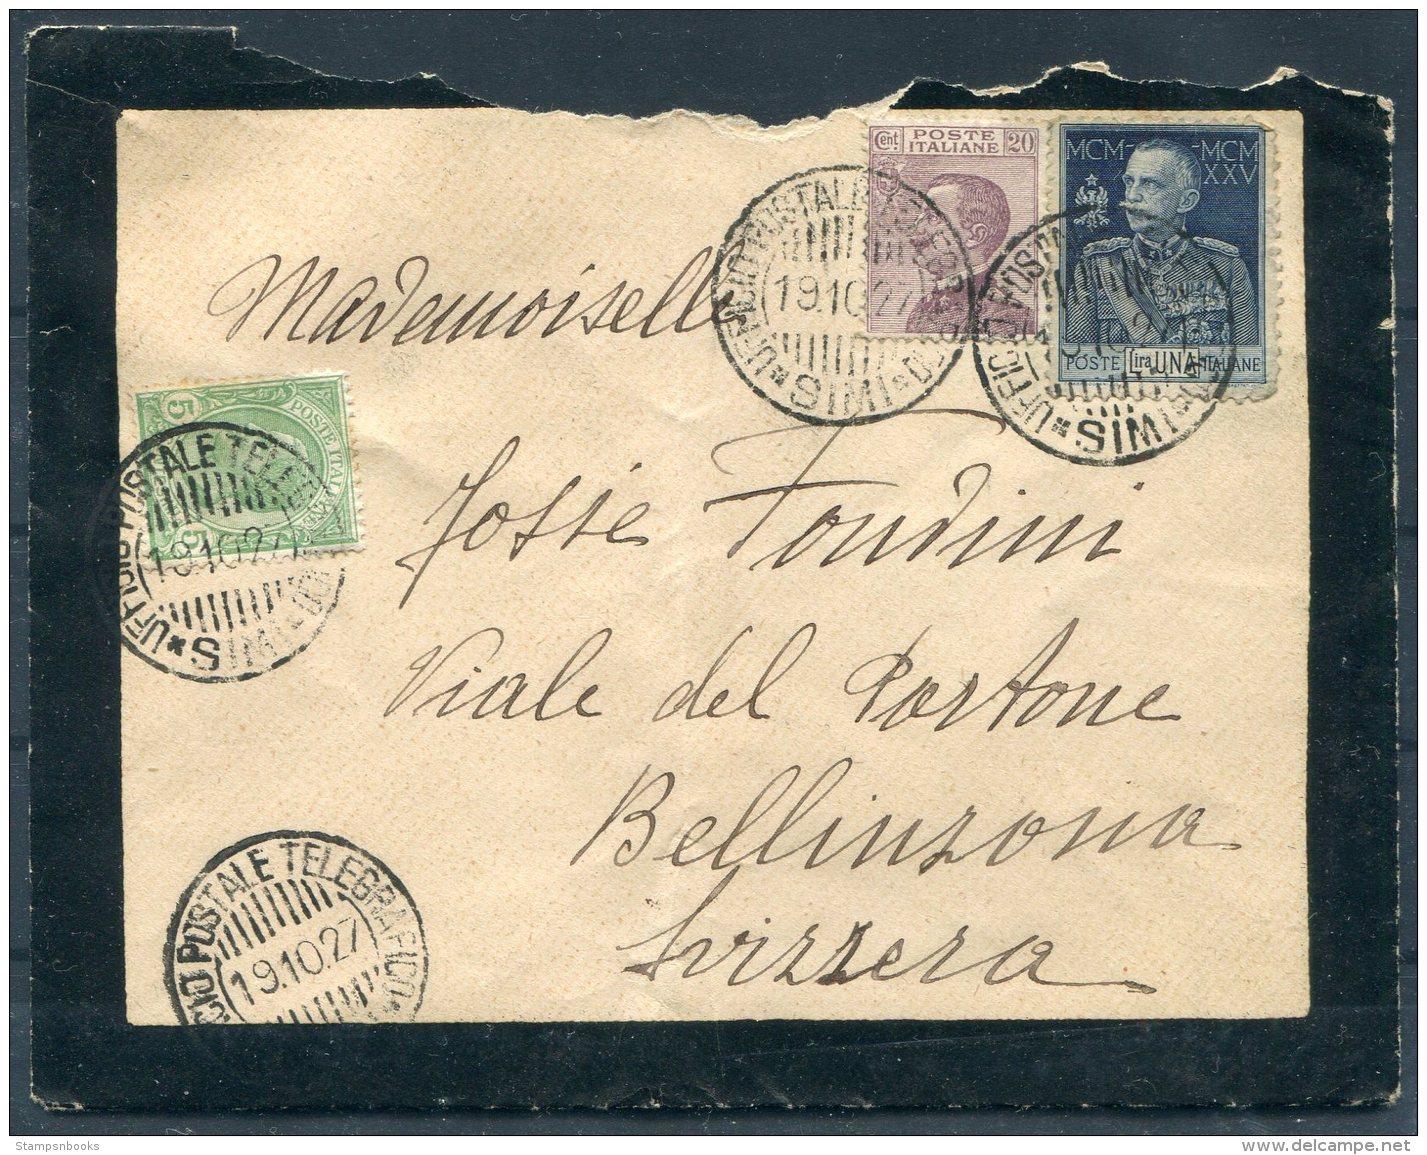 Cent. POSTE ITALIANE 20
MCM MCM
XXV
POSTE Lira UNA ITALIANE
UFFICIO POSTALE TELEGRAFICO
19.10.27
SIMI
UFFICIO POSTALE
SIMI
Mademoiselle
5 POSTE ITALIANE 5
UFFICIO POSTALE TELEGRAFICO
19.10.27
SIMI
Josie Fondini
Viale del Portone
Bellinzona
Svizzera
POSTALE TELEGRAFICO
19.10.27
Stampsnbooks
www.delcampe.net